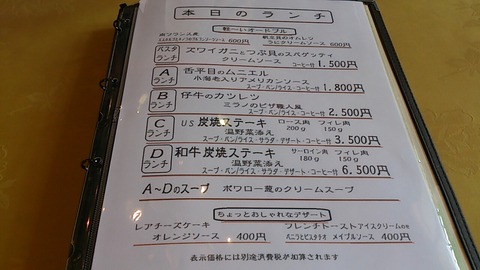 本日のランチ
軽～いオードブル
南フランス産
600円
帆立貝のオムレツ
うにクリームソース 600円
パスタランチ
ズワイガニとつぶ貝のスパゲッティ
クリームソース コーヒー付 1.500円
Aランチ
舌平目のムニエル
小海老入りアメリカンソース
スープ・パン/ライス・コーヒー付 1.800円
Bランチ
仔牛のカツレツ
ミラノのピザ職人風
スープ・パン/ライス・コーヒー付 2.500円
Cランチ
US炭焼ステーキ ロース肉 フィレ肉
温野菜添え 200g 150g
スープ・パン/ライス・サラダ・デザート・コーヒー付 3.500円
Dランチ
和牛炭焼ステーキ サーロイン肉 フィレ肉
温野菜添え 180g 150g
スープ・パン/ライス・サラダ・デザート・コーヒー付 6.500円
A～Dのスープ ポワロー葱のクリームスープ
ちょっとおしゃれなデザート
レアチーズケーキ
オレンジソース 400円
フレンチトーストアイスクリームのせ
バニラとピスタチオ メイプルソース 400円
表示価格には別途消費税が加算されます